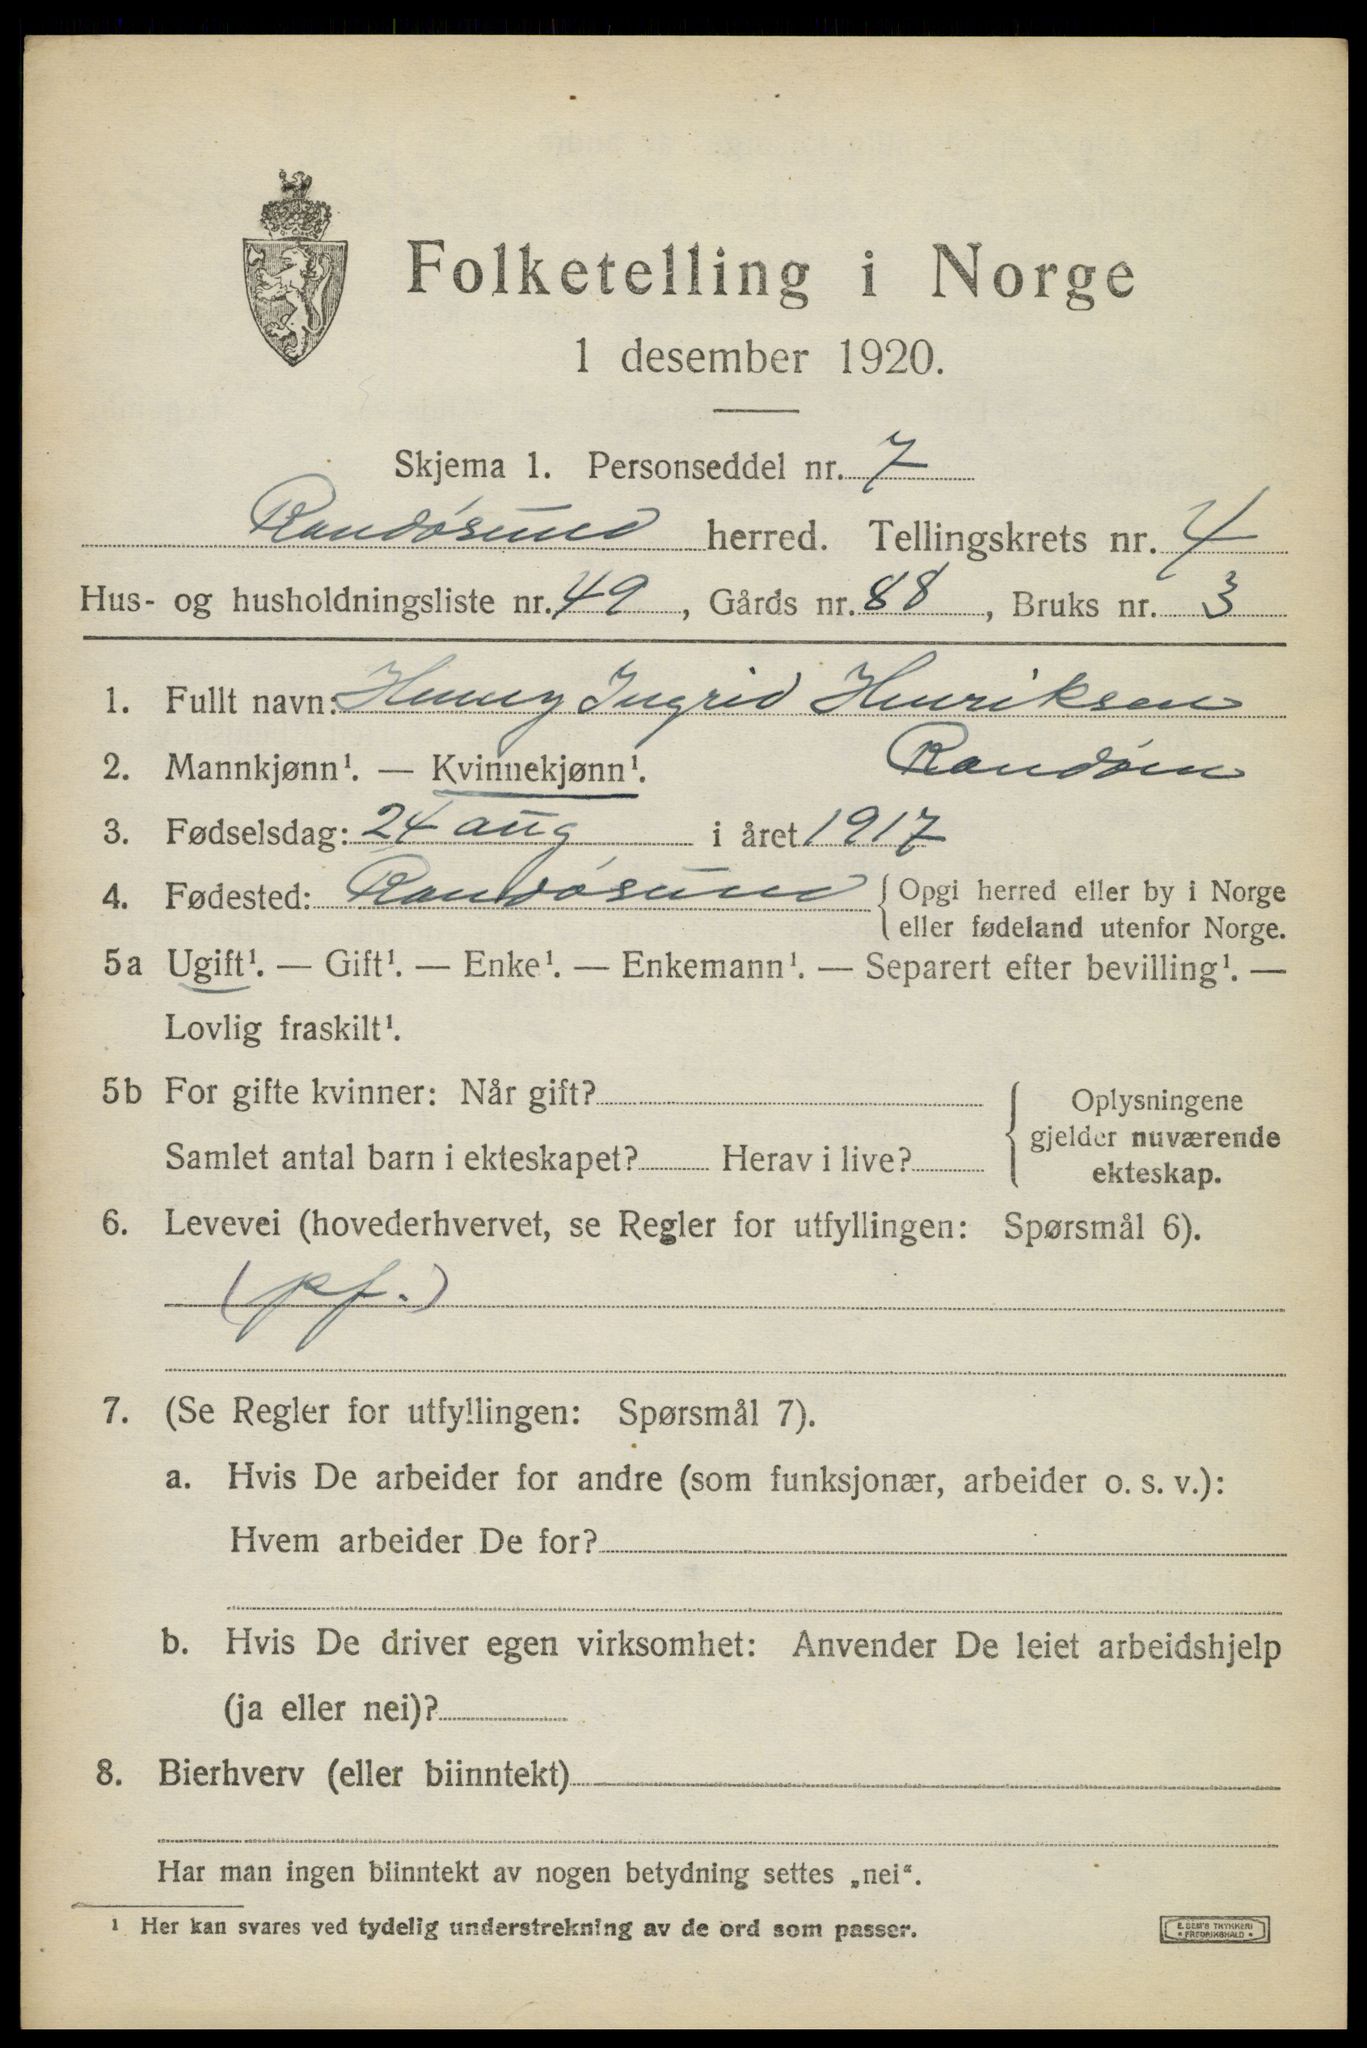 Folketelling i Norge
1 desember 1920.
Skjema 1. Personseddel nr. 7
Randøsund herred. Tellingskrets nr. 4
Hus- og husholdningsliste nr. 49, Gårds nr. 88, Bruks nr. 3
1. Fullt navn: Henny Ingrid Henriksen
2. Mannkjønn¹. — Kvinnekjønn¹. Randøen
3. Fødselsdag: 24 aug i året 1917
4. Fødested: Randøsund { Opgi herred eller by i Norge
eller fødeland utenfor Norge.
5a Ugift¹. — Gift¹. — Enke¹. — Enkemann¹. — Separert efter bevilling¹. —
Lovlig fraskilt¹.
5b For gifte kvinner: Når gift? { Oplysningene
gjelder nuværende
Samlet antal barn i ekteskapet? Herav i live?
ekteskap.
6. Levevei (hovederhvervet, se Regler for utfyllingen: Spørsmål 6).
(pf.)
7. (Se Regler for utfyllingen: Spørsmål 7).
a. Hvis De arbeider for andre (som funksjonær, arbeider o. s. v.):
Hvem arbeider De for?
b. Hvis De driver egen virksomhet: Anvender De leiet arbeidshjelp
(ja eller nei)?
8. Bierhverv (eller biinntekt)
Har man ingen biinntekt av nogen betydning settes „nei“.
¹ Her kan svares ved tydelig understrekning av de ord som passer.
E. SEM'S TRYKKERI
• FREDRIKSHALD •